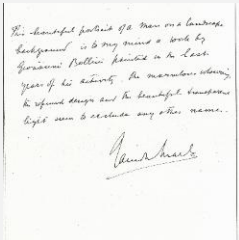 This beautiful portrait of a man on a landscape
background is to my mind a work by
Giovanni Bellini painted in the last
years of his activity. The marvelous colouring,
the refined design and the beautiful transparent
light seem to exclude any other name.